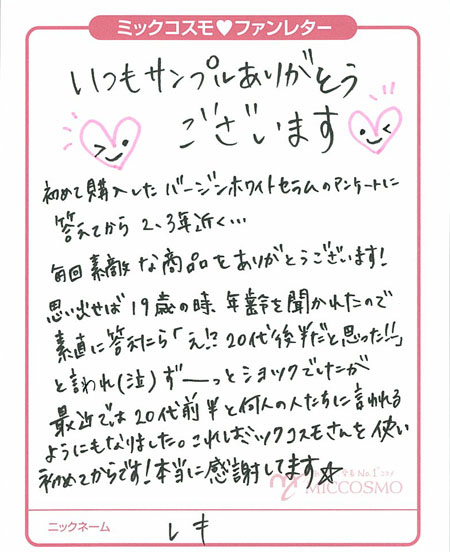 ミックコスモ♥ファンレター
いつもサンプルありがとう
ございます
初めて購入したバージンホワイトセラムのアンケートに
答えてから2、3年近く…
毎回素敵な商品をありがとうございます!
思い出せば19歳の時、年齢を聞かれたので
素直に答えたら「え!?20代後半だと思った!!」
と言われ(泣)ずーーっとショックでしたが
最近では20代前半と何人の人たちに言われる
ようにもなりました。これもミックコスモさんを使い
初めてからです!本当に感謝してます☆
MICCOSMO
ニックネーム
レキ